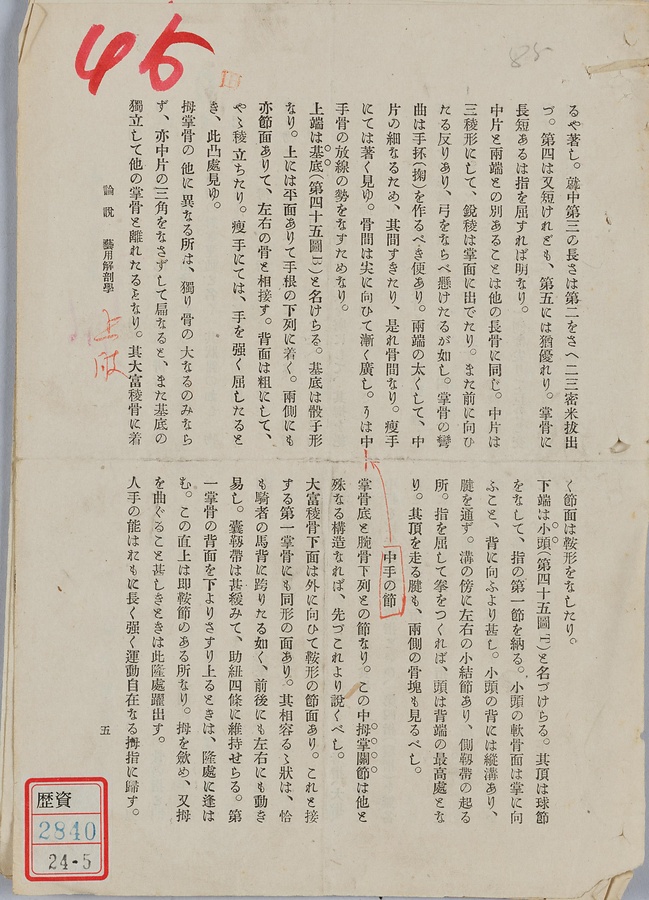 45
III
85
るや著し。就中第三の長さは第二をさへ二三密米拔出
づ。第四は又短けれども、第五には猶優れり。掌骨に
長短あるは指を屈すれば明なり。
中片と兩端との別あることは他の長骨に同じ。中片は
三稜形にして、銳稜は掌面に出でたり。また前に向ひ
たる反りあり、弓をならべ懸けたるが如し。掌骨の彎
曲は手抔(掬)を作るべき便あり。兩端の太くして、中
片の細なるため、其間すきたり、是れ骨間なり。瘦手
にては著く見ゆ。骨間は尖に向ひて漸く廣し。うは中
手骨の放線の勢をなすためなり。
上端は基底(第四十五圖「I」)と名けらる。基底は骰子形
なり。上には平面ありて手根の下列に着く。兩側にも
亦節面ありて、左右の骨と相接す。背面は粗にして、
やゝ稜立ちたり。瘦手にては、手を强く屈したると
き、此凸處見ゆ。
拇掌骨の他に異なる所は、獨り骨の大なるのみなら
ず、亦中片の三角をなさずして扁なると、また基底の
獨立して他の掌骨と離れたるとなり。其大富稜骨に着
論說 藝用解剖學
上肢
く節面は鞍形をなしたり。
下端は小頭(第四十五圖「I」)と名づけらる。其頂は球節
をなして、指の第一節を納る。小頭の軟骨面は掌に向
ふこと、背に向ふより甚し。小頭の背には縱溝あり、
腱を通ず。溝の傍に左右の小結節あり、側靱帶の起る
所。指を屈して拳をつくれば、頭は背端の最高處とな
り。其頂を走る腱も、兩側の骨塊も見るべし。
中手の節
掌骨底と腕骨下列との節なり。この中拇掌關節は他と
殊なる構造なれば、先づこれより說くべし。
大富稜骨下面は外に向ひて鞍形の節面あり。これと接
する第一掌骨にも同形の面あり。其相容るゝ狀は、恰
も騎者の馬背に跨りたる如く、前後にも左右にも動き
易し。囊靱帶は甚緩みて、助紐四條に維持せらる。第
一掌骨の背面を下よりさすり上るときは、隆處に逢は
む。この直上は卽鞍節のある所なり。拇を斂め、又拇
を曲ぐること甚しきときは此隆處躍出す。
人手の能はおもに長く强く運動自在なる拇指に歸す。
五
歷資
2840
24-5